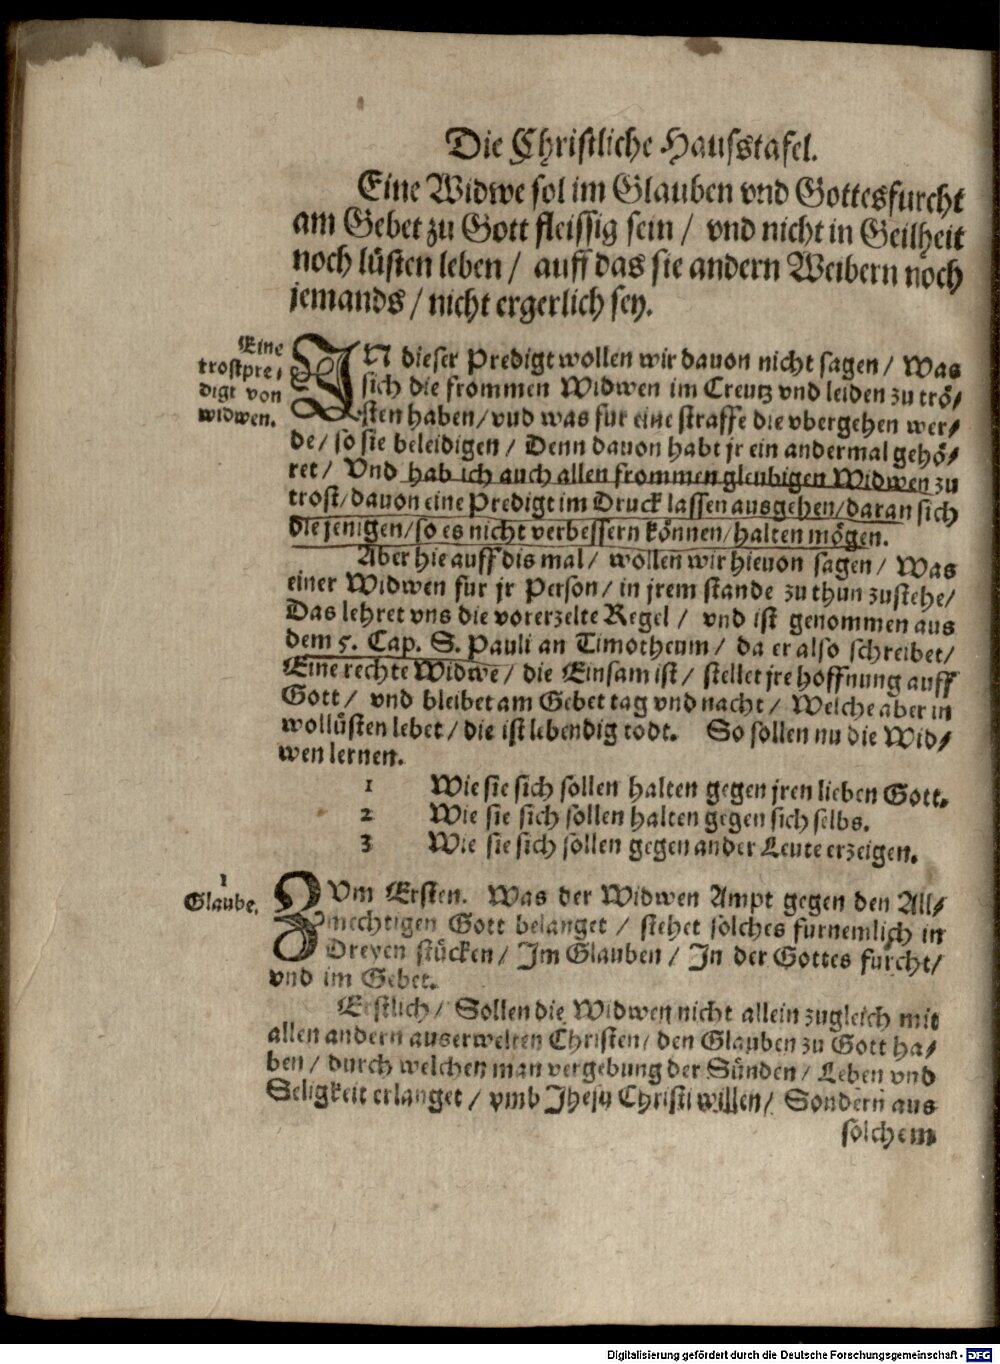 Die Christliche Hausstafel.
Eine Widwe sol im Glauben vnd Gottesfurcht
am Gebet zu Gott fleissig sein / vnd nicht in Geilheit
noch lüsten leben / auff das sie andern Weibern noch
jemands / nicht ergerlich sey.
Eine
trostpre-
digt von
widwen.
IN dieser Predigt wollen wir dauon nicht sagen / Was
sich die frommen Widwen im Creutz vnd leiden zu trö-
sten haben / vnd was für eine straffe die vbergehen wer-
de / so sie beleidigen / Denn dauon habt jr ein andermal gehö-
ret / Vnd hab ich auch allen frommen gleubigen Widwen zu
trost / dauon eine Predigt im Druck lassen ausgehen / daran sich
die jenigen / so es nicht verbessern können / halten mögen.
Aber hie auff dis mal / wollen wir hieuon sagen / Was
einer Widwen für jr Person / in jrem stande zu thun zustehe /
Das lehret vns die vorerzelte Regel / vnd ist genommen aus
dem 5. Cap. S. Pauli an Timotheum / da er also schreibet /
Eine rechte Widwe / die Einsam ist / stellet jre hoffnung auff
Gott / vnd bleibet am Gebet tag vnd nacht / Welche aber in
wollüsten lebet / die ist lebendig todt. So sollen nu die Wid-
wen lernen.
1 Wie sie sich sollen halten gegen jren lieben Gott.
2 Wie sie sich sollen halten gegen sich selbs.
3 Wie sie sich sollen gegen ander Leute erzeigen.
1
Glaube.
ZVm Ersten. Was der Widwen Ampt gegen den All-
mechtigen Gott belanget / stehet solches fürnemlich in
Dreyen stücken / Im Glauben / In der Gottes furcht /
vnd im Gebet.
Erstlich / Sollen die Widwen nicht allein zugleich mit
allen andern auserwelten Christen / den Glauben zu Gott ha-
ben / durch welchen man vergebung der Sünden / Leben vnd
Seligkeit erlanget / vmb Jhesu Christi willen / Sondern aus
solchem
Digitalisierung gefördert durch die Deutsche Forschungsgemeinschaft - DFG